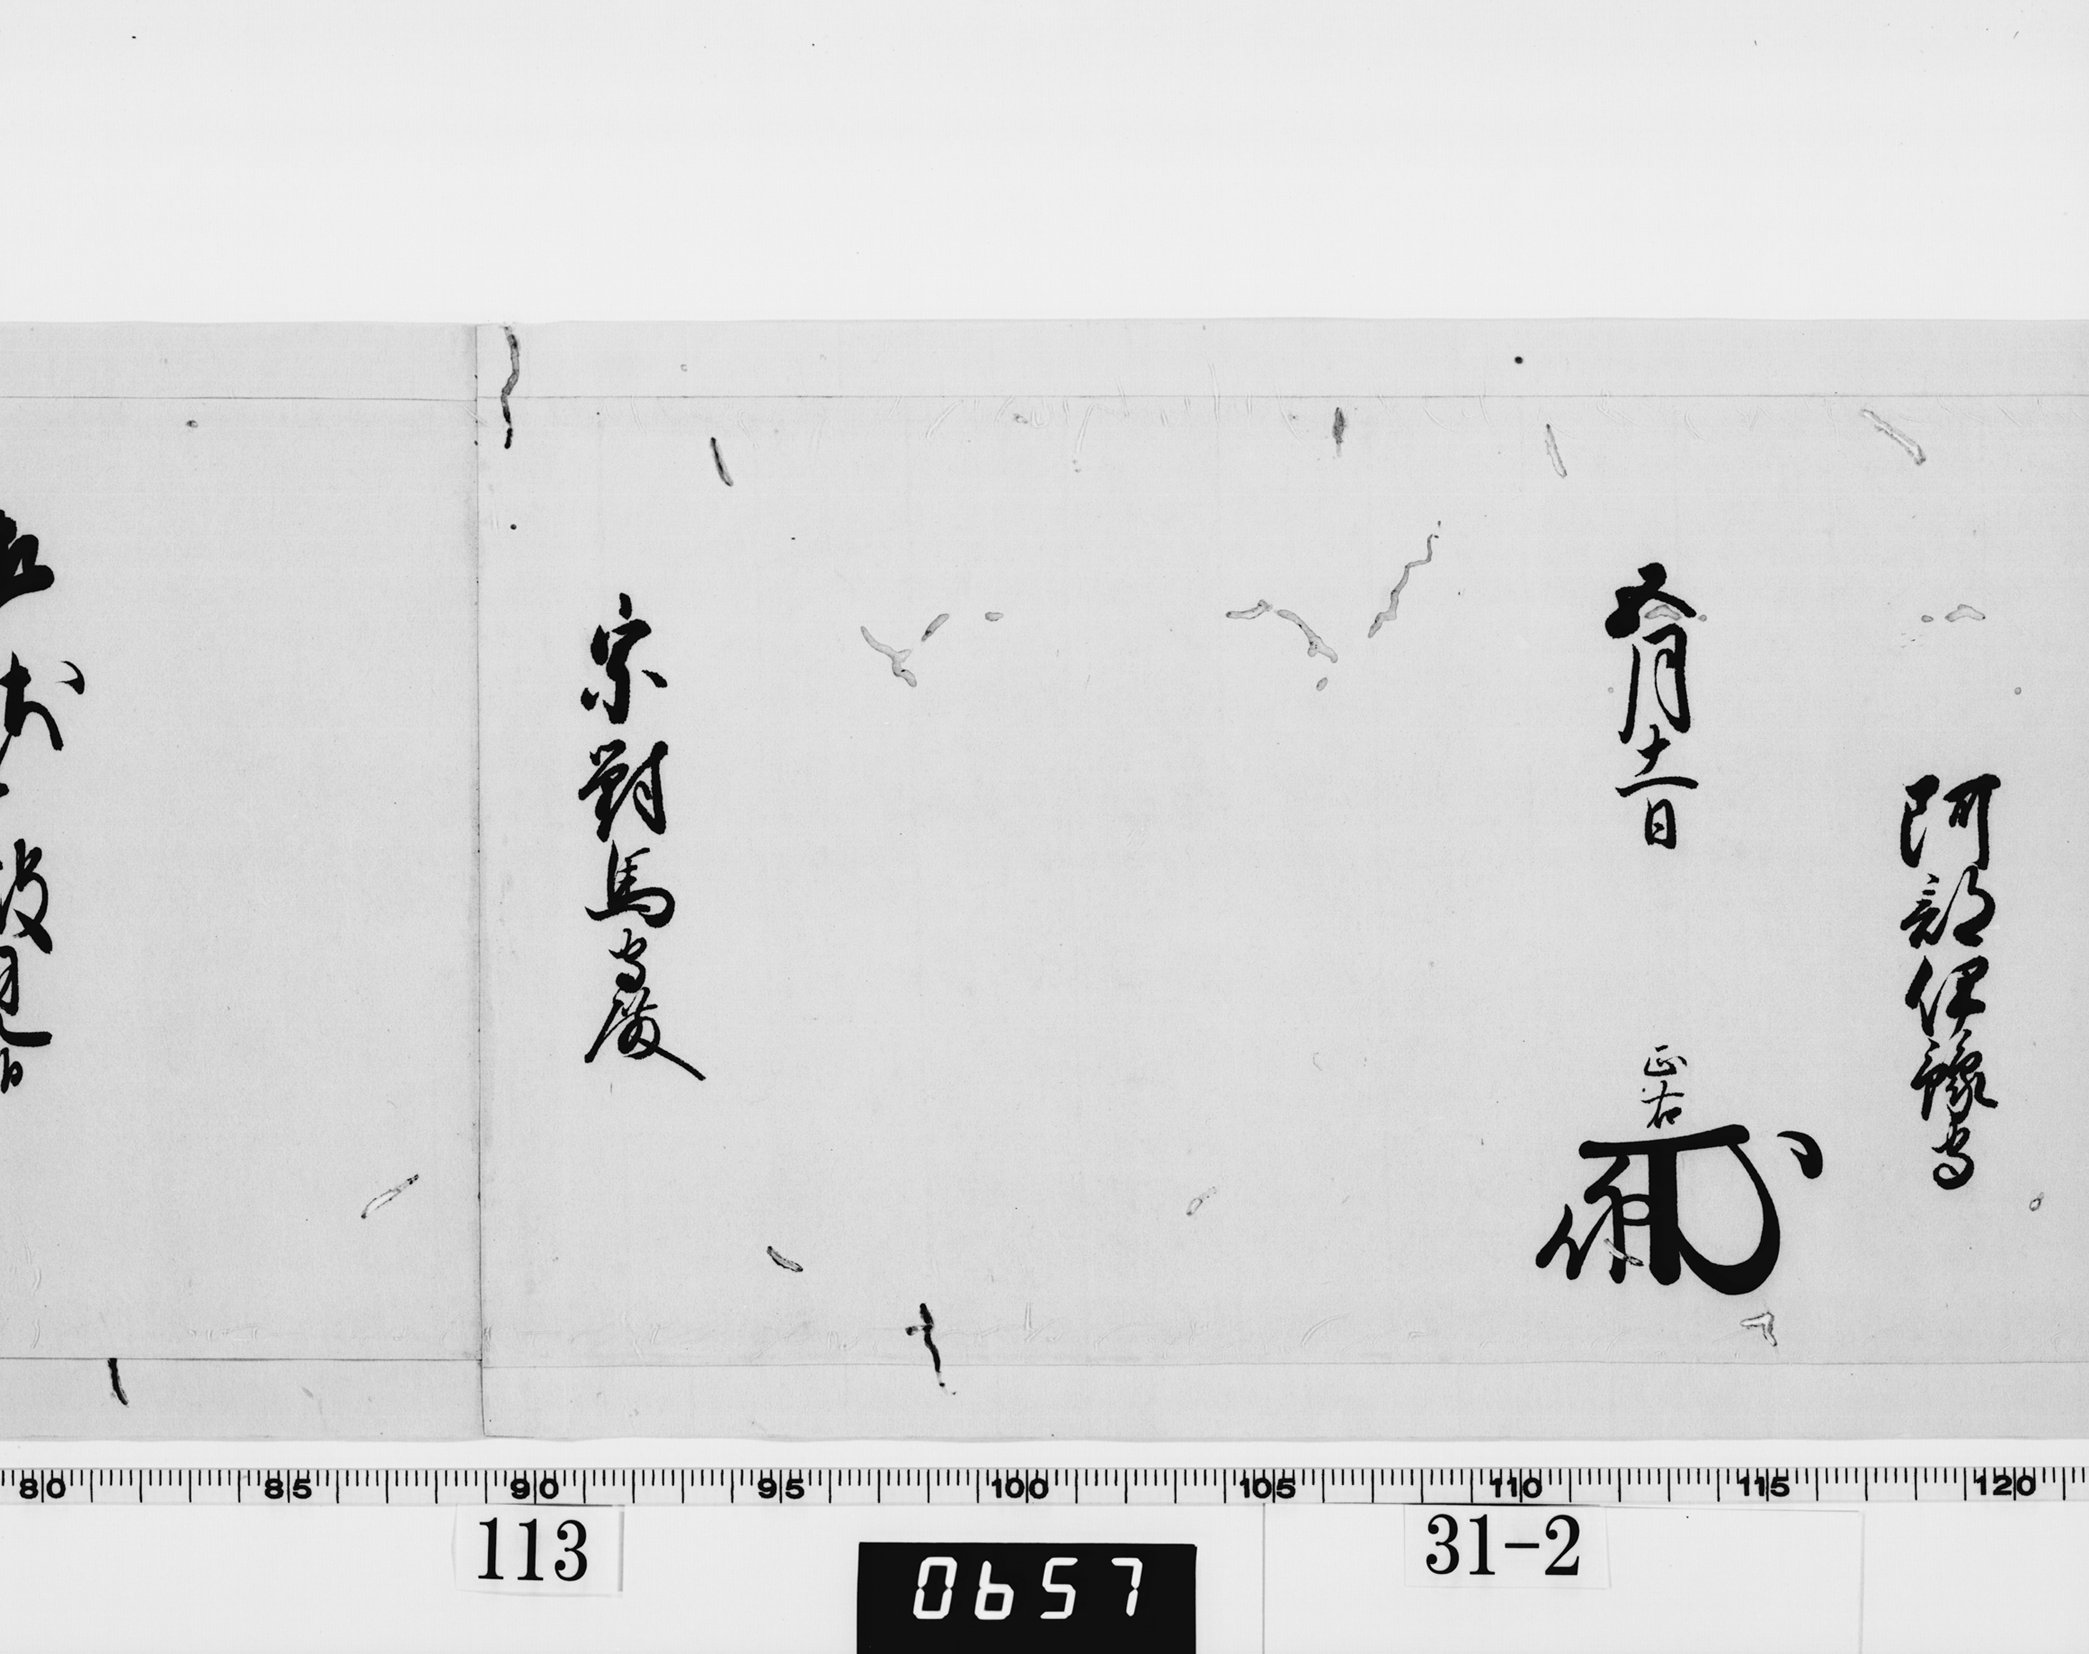 阿部伊豫守
五月十一日
正右
宗對馬守殿
80 85 90 95 100 105 110 115 120
113
0657
31-2